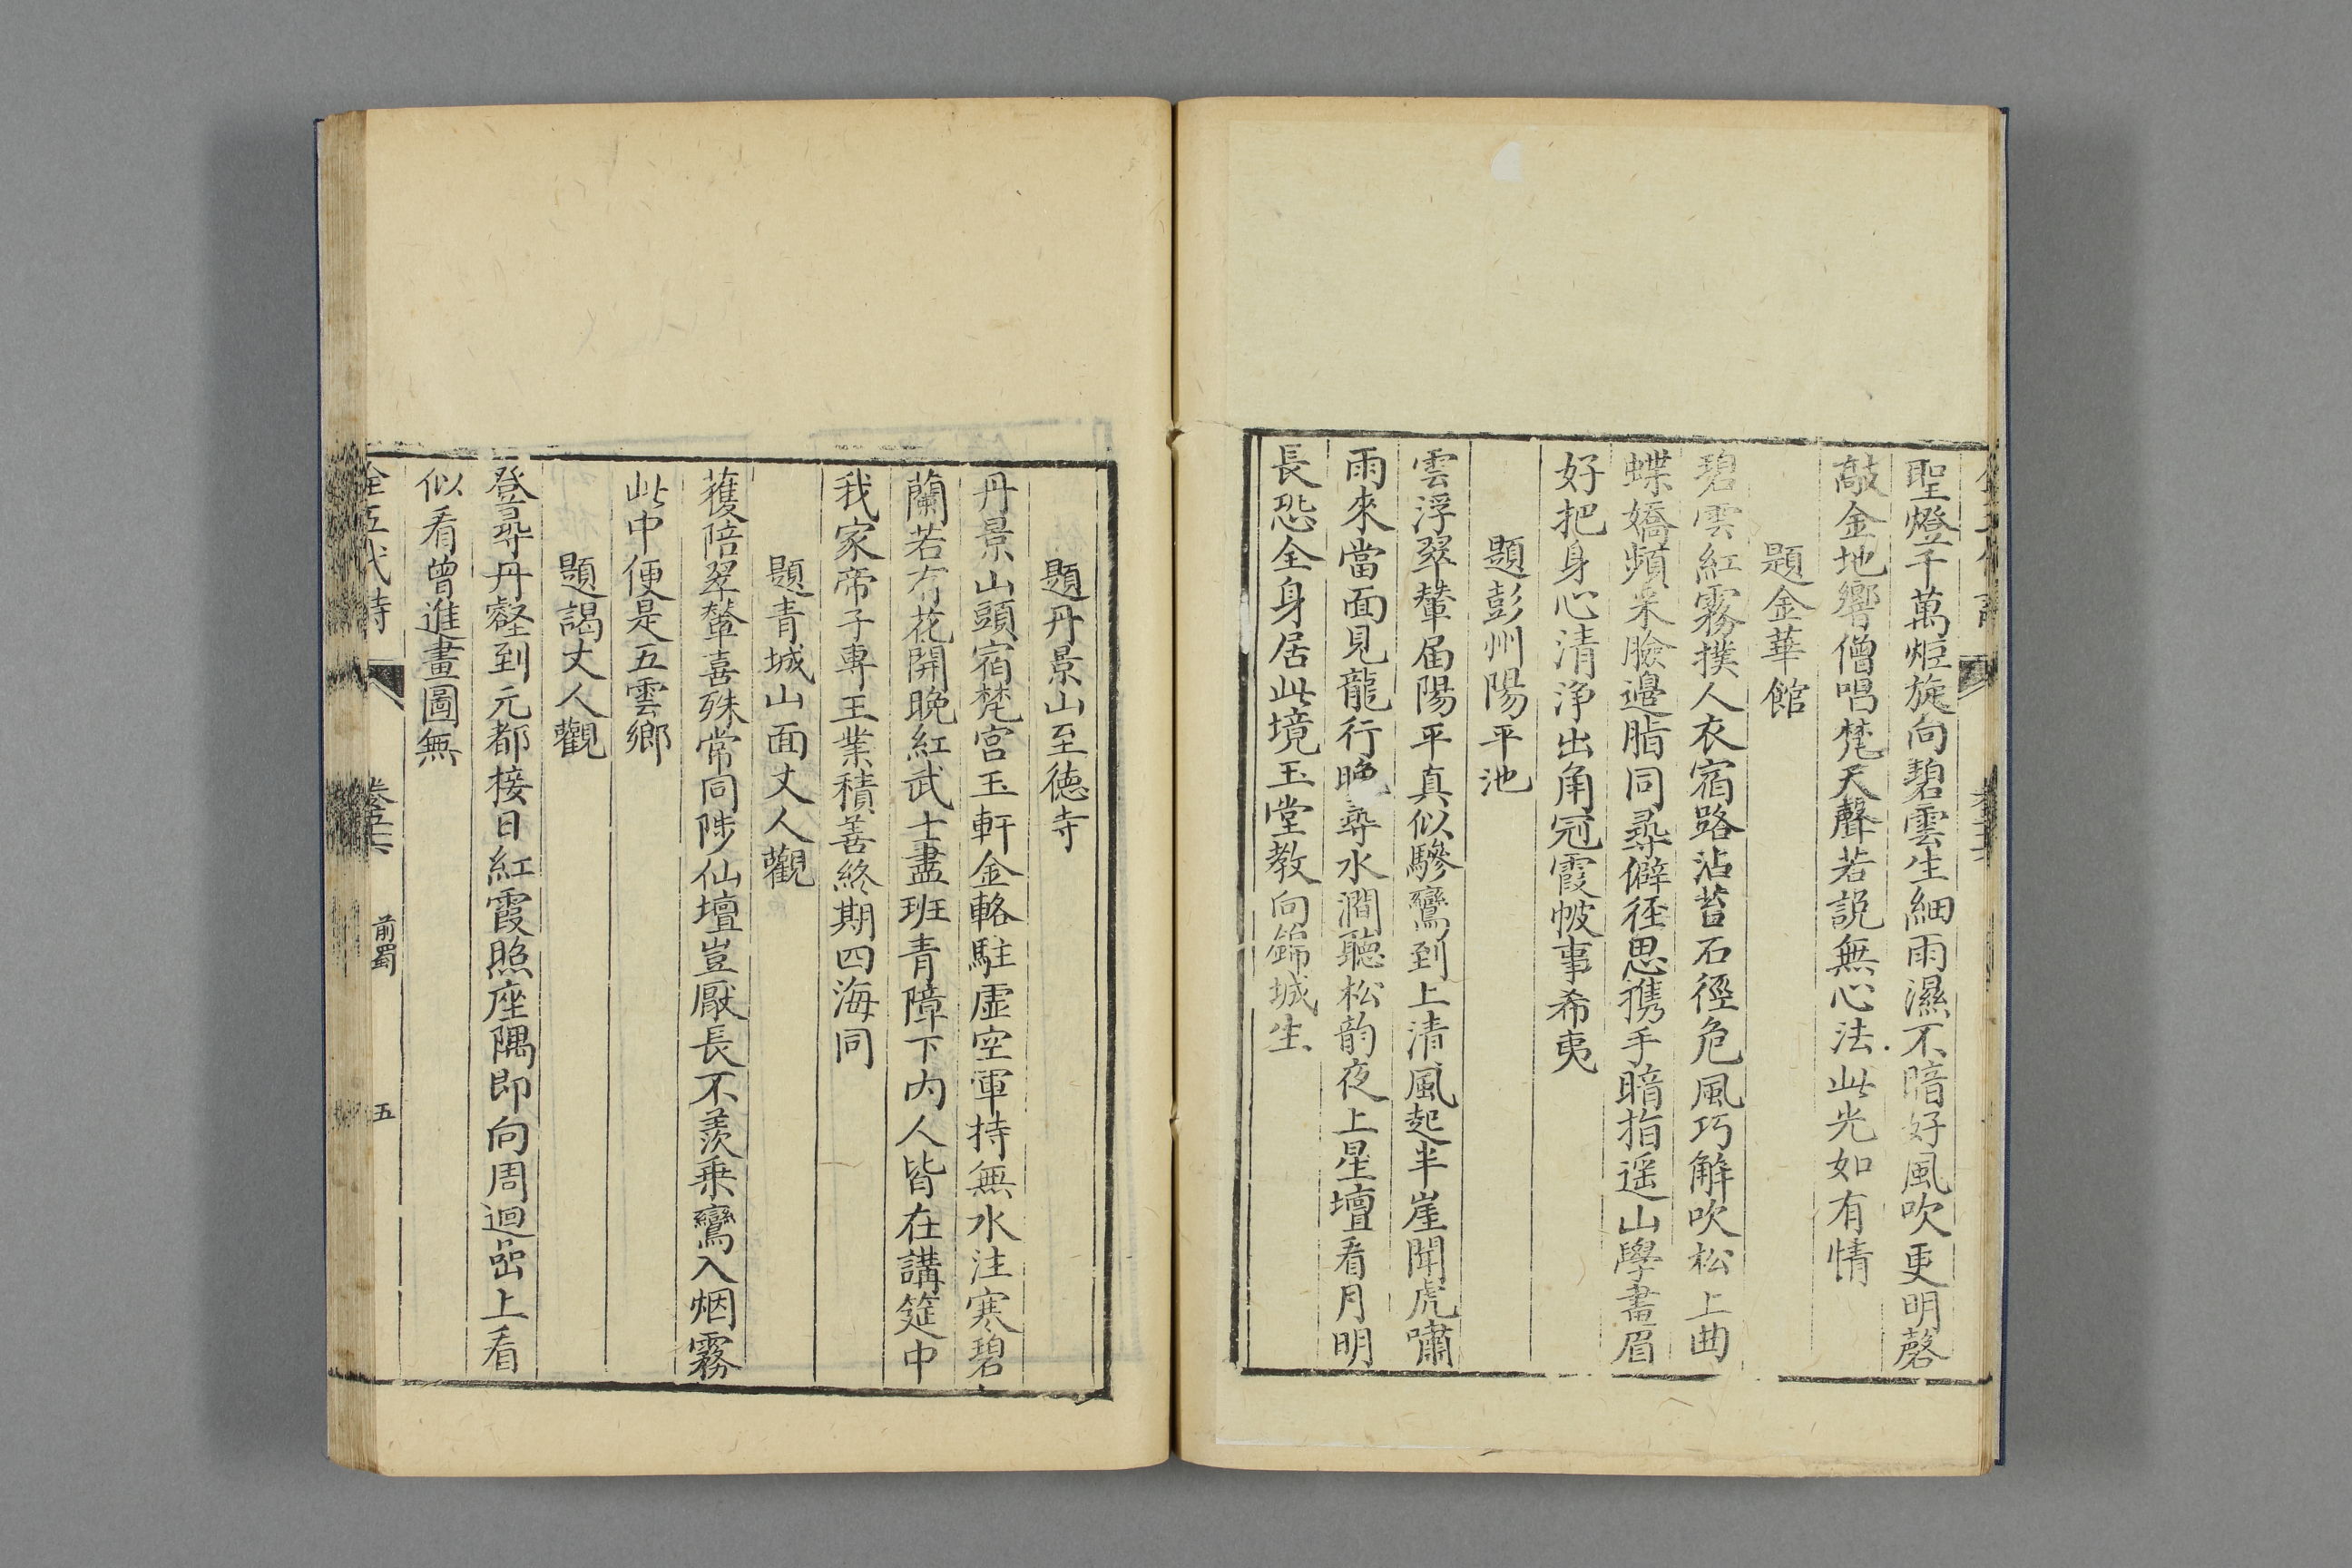 聖燈千萬炬旋向碧雲生細雨濕不暗好風吹更明磬
敲金地響僧唱梵天聲若說無心法此光如有情
題金華館
碧雲紅霧撲人衣宿路沾苔石徑危風巧解吹松上曲
蝶嬌頻采臉邊脂同尋僻徑思携手暗指遥山學畫眉
好把身心清淨出角冠霞帔事希夷
題彭州陽平池
雲浮翠輦届陽平真似驂鸞到上清風起半崖聞虎嘯
雨來當面見龍行晚尋水澗聽松韵夜上星壇看月明
長恐全身居此境玉堂教向錦城生
題丹景山至德寺
丹景山頭宿梵宮玉軒金輅駐虛空軍持無水注寒碧
蘭若有花開晚紅武士盡班青障下内人皆在講筵中
我家帝子專王業積善終期四海同
題青城山面丈人觀
獲陪翠輦喜殊常同陟仙壇豈厭長不羨乘鸞入烟霧
此中便是五雲鄉
題謁丈人觀
登尋丹壑到元都接日紅霞照座隅即向周迴嵒上看
似看曾進畫圖無
全五代詩
前蜀
五